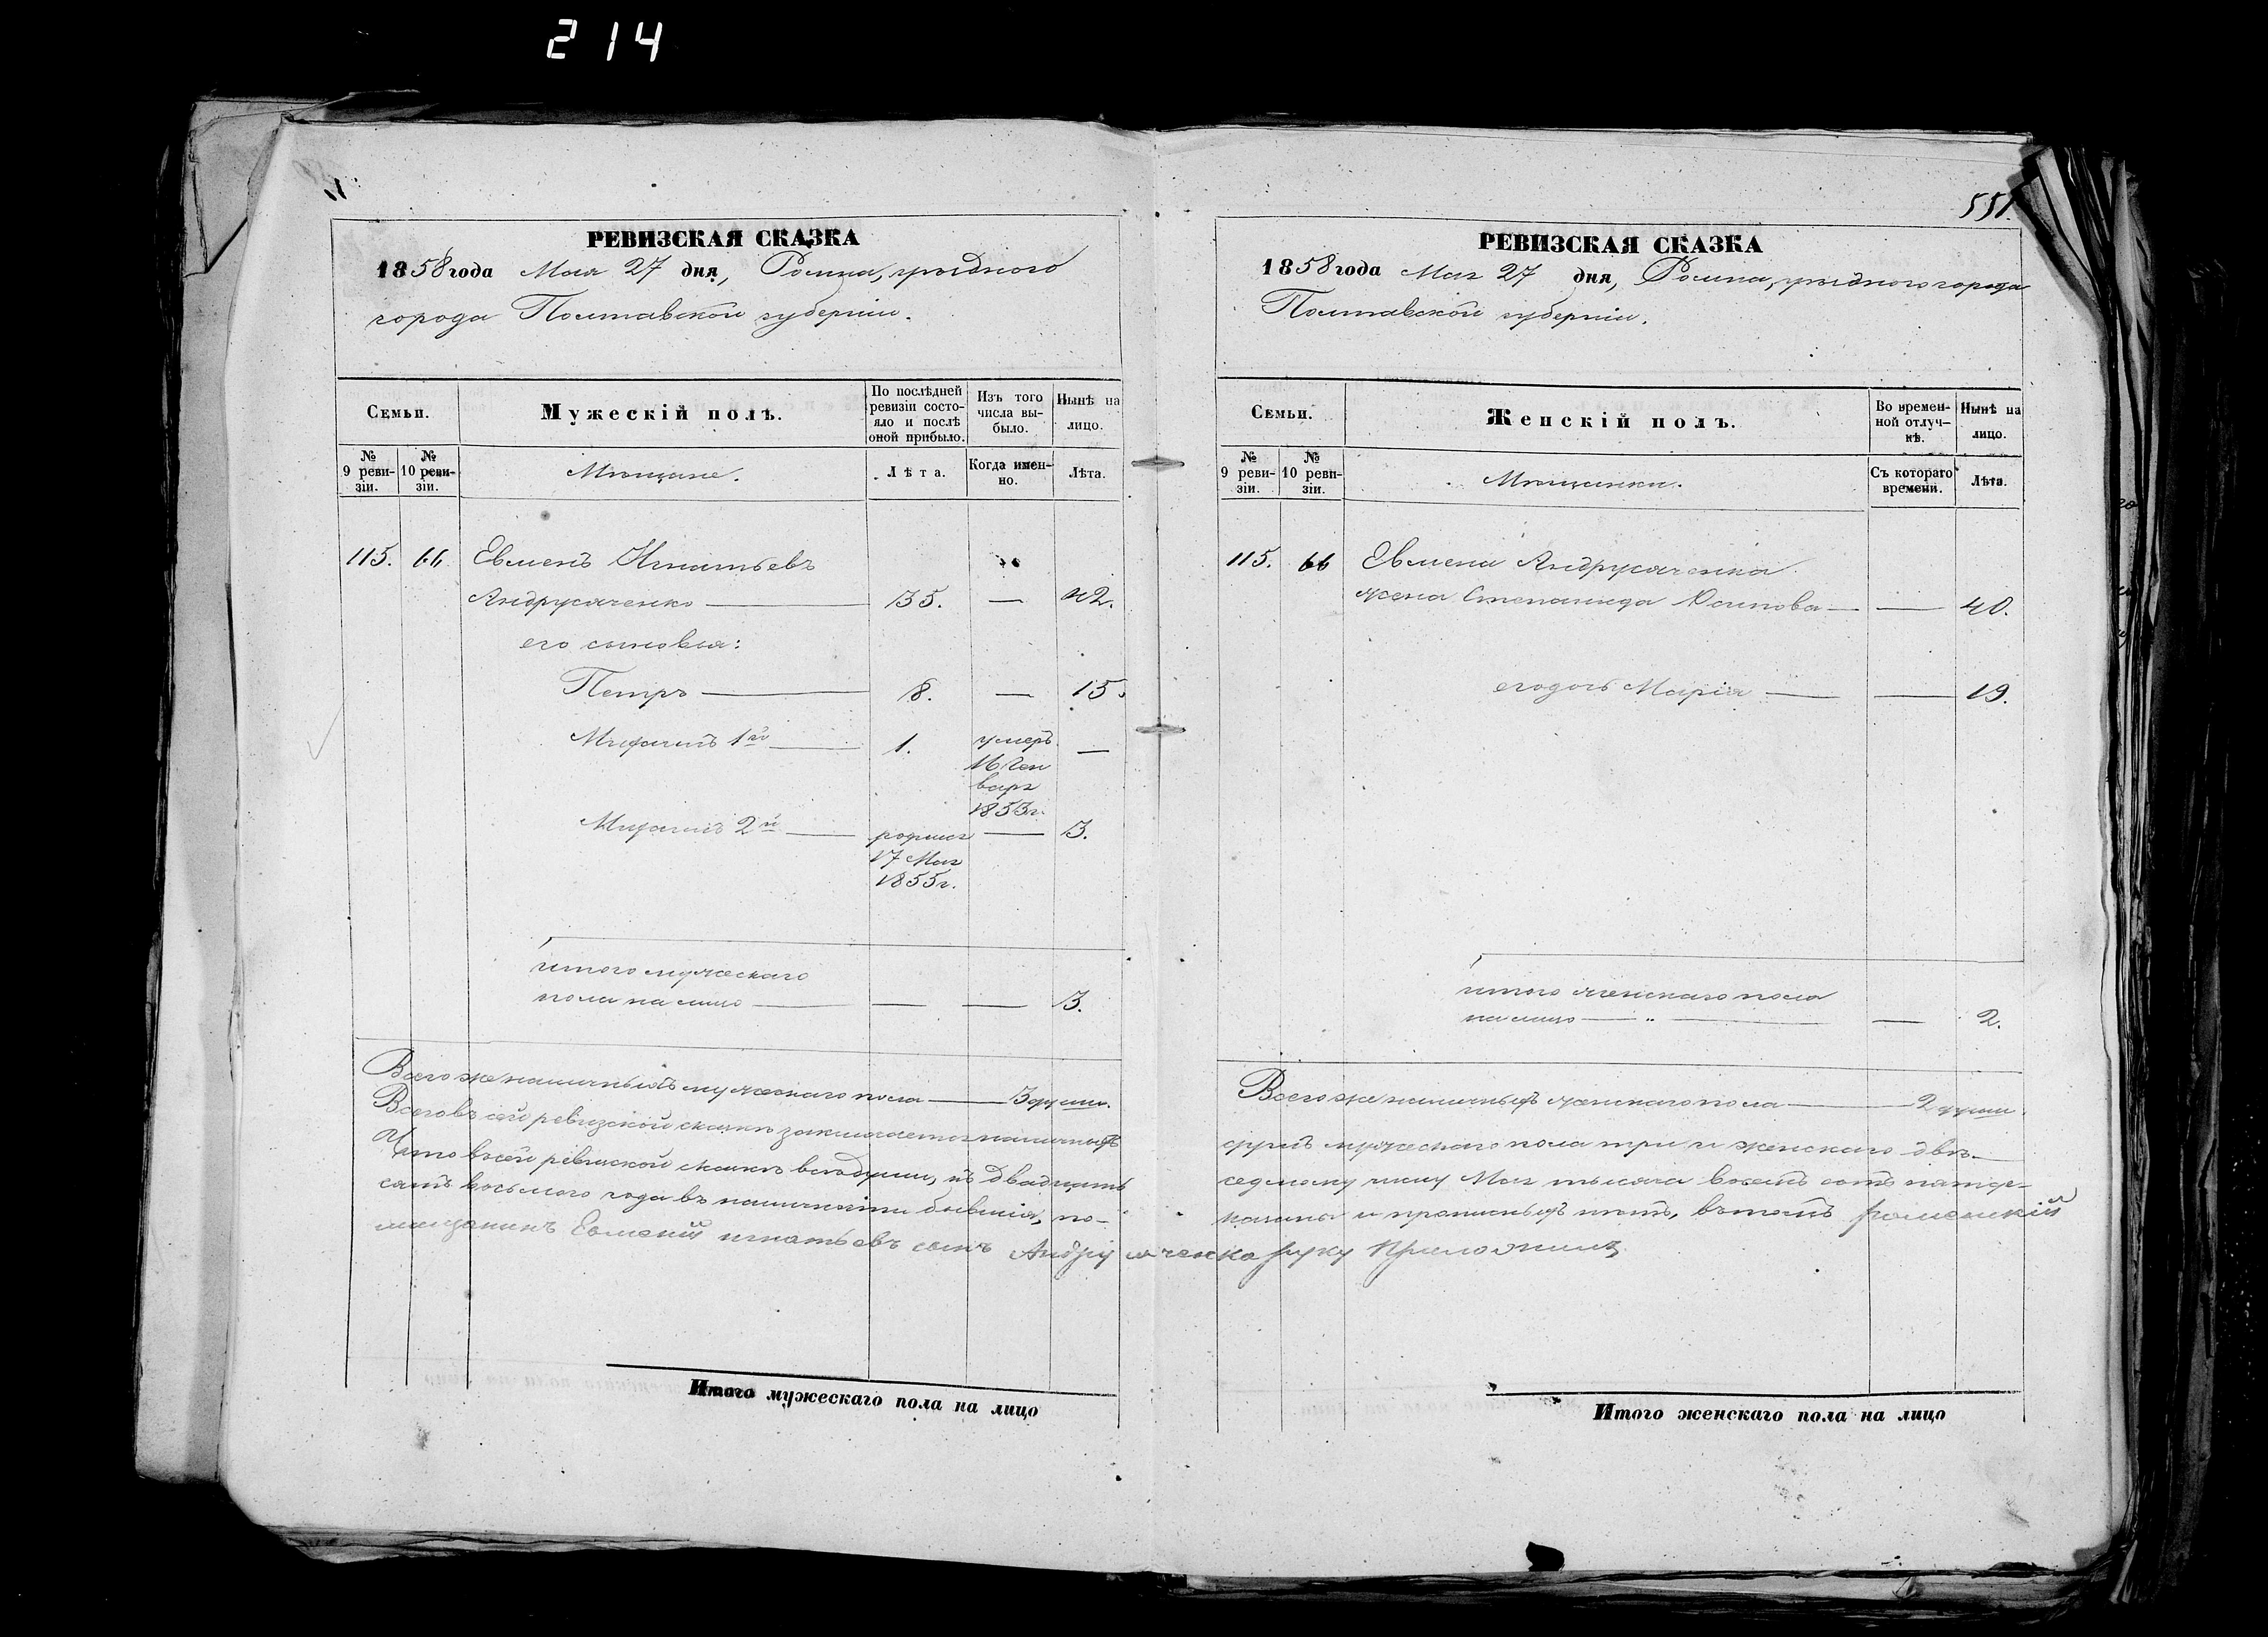 214
РЕВИЗСКАЯ СКАЗКА
1858 года Мая 27 дня, Ромна, уѣзднаго
города Полтавской губерніи.
Семьи.
Мужескій полъ.
По послѣдней ревизіи состояло и послѣ оной прибыло.
Изъ того числа выбыло.
Нынѣ на лицо.
№ 9 ревизіи.
№ 10 ревизіи.
Мѣщане.
Лѣта.
Когда именно.
Лѣта.
115. 66. Евменъ Игнатьевъ
Андрусяченко — 35. — 42.
его сыновья:
Петръ — 8. — 15.
Михаилъ 1й — 1. умеръ —
16 Ген
варя
1853г.
Михаилъ 2й — родился — 3.
17 Мая
1855г.
итого мужескаго
пола на лицо — — — 3.
Всего же наличныхъ мужескаго пола — 3 души.
Всего въ сей ревизской сказкѣ заключается наличныхъ
Что въ сей ревизской сказкѣ всѣ души, къ двадцать
сятъ восьмого года въ наличности бывшія, по-
мещанинъ Евмений игнатьевъ сынъ Андрусяченко руку Приложилъ
Итого мужескаго пола на лицо
551.
РЕВИЗСКАЯ СКАЗКА
1858 года Мая 27 дня, Ромна, уѣзднаго города
Полтавской губерніи.
Семьи.
Женскій полъ.
Во временной отлучкѣ.
Нынѣ на лицо.
№ 9 ревизіи.
№ 10 ревизіи.
Мѣщанки.
Съ котораго времени.
Лѣта.
115. 66 Евмена Андрусяченка
жена Степанида — — 40.
его дочь Марія — — 19.
итого женскаго пола
на лицо — — — 2.
Всего же наличныхъ женскаго пола — 2 души.
душъ мужескаго пола три и женскаго двѣ —
седмому числу Мая тысяча восемъ сотъ пятде-
казаны и прописныхъ нѣтъ, въ томъ роменский
Итого женскаго пола на лицо